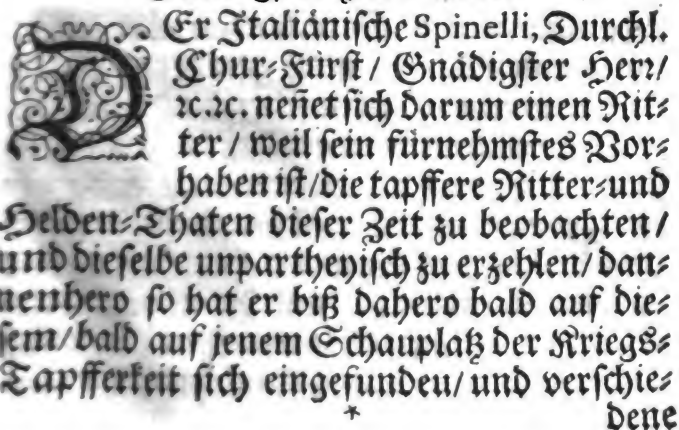 DEr Italiänische Spinelli, Durchl.
Chur-Fürst / Gnädigster Herr/
ꝛc.ꝛc. neñet sich darum einen Rit-
ter / weil sein fürnehmstes Vor-
haben ist/die tapffere Ritter-und
Helden-Thaten dieser Zeit zu beobachten /
und dieselbe unpartheyisch zu erzehlen/ dan-
nenhero so hat er biß dahero bald auf die-
sem/bald auf jenem Schauplatz der Kriegs-
Tapfferkeit sich eingefundeu/ und verschie-
* dene